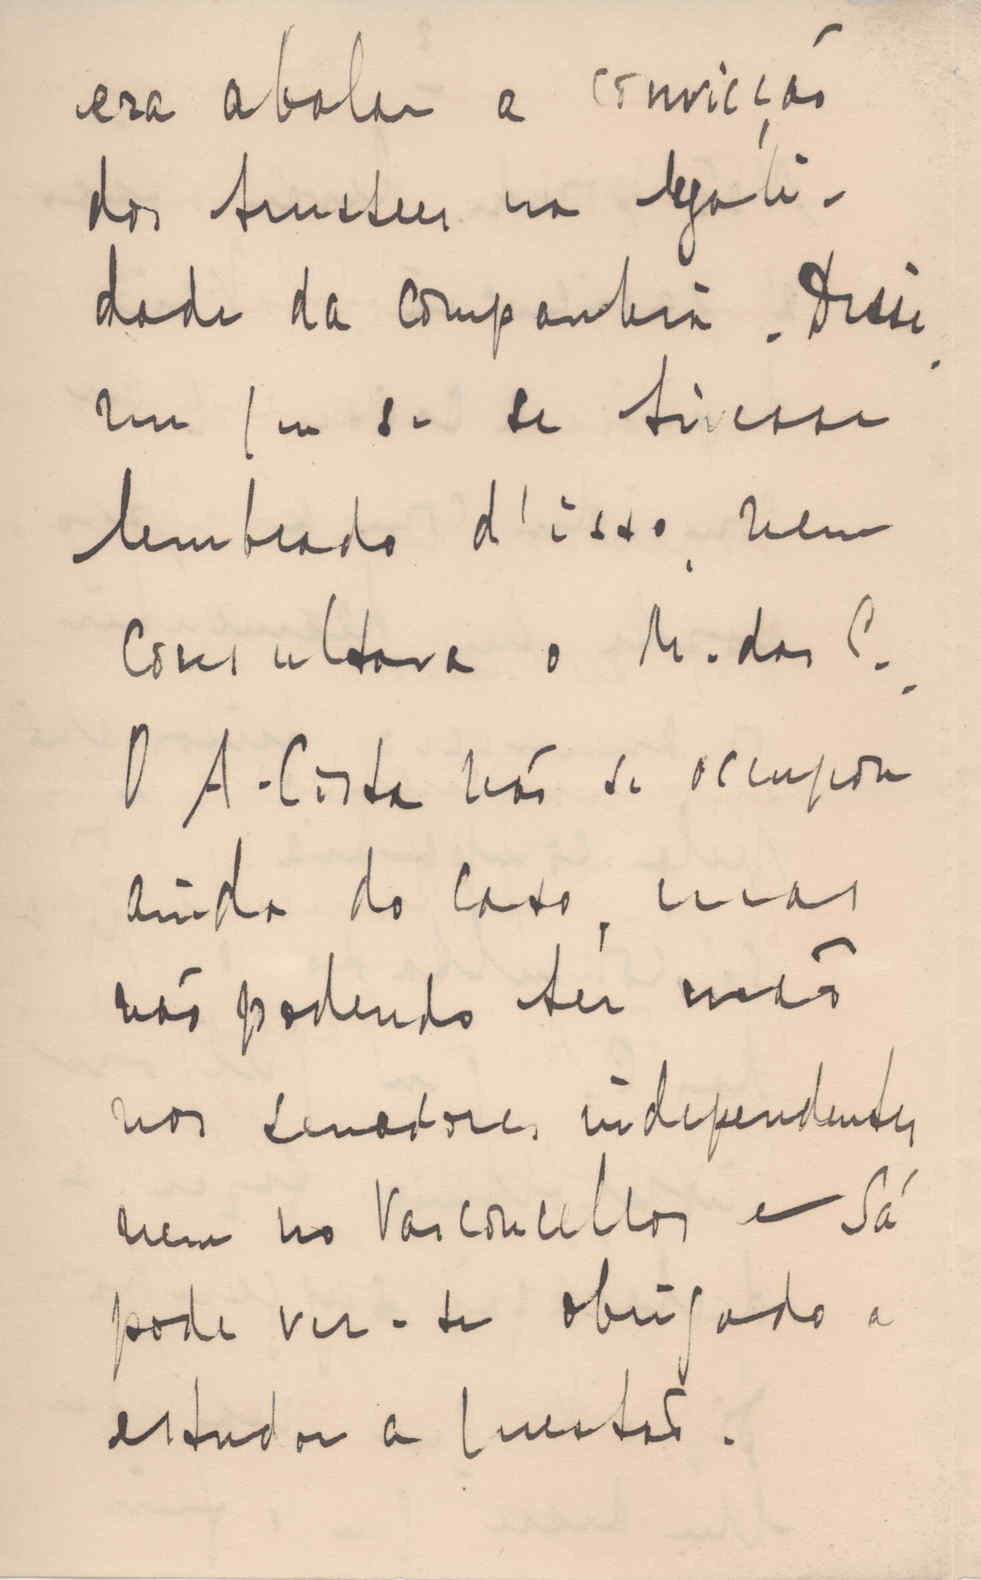 era abalar a convicção
dos trustees na legali-
dade da companhia. Disse
me que se se tivesse
lembrado d'isso, nem
consultava o M. das C..
O A. Costa não se occupou
ainda do caso, mas
não podendo ter mão
nos senadores independentes
nem no Vasconcellos e Sá
pode ver-se obrigado a
estudar a questão.